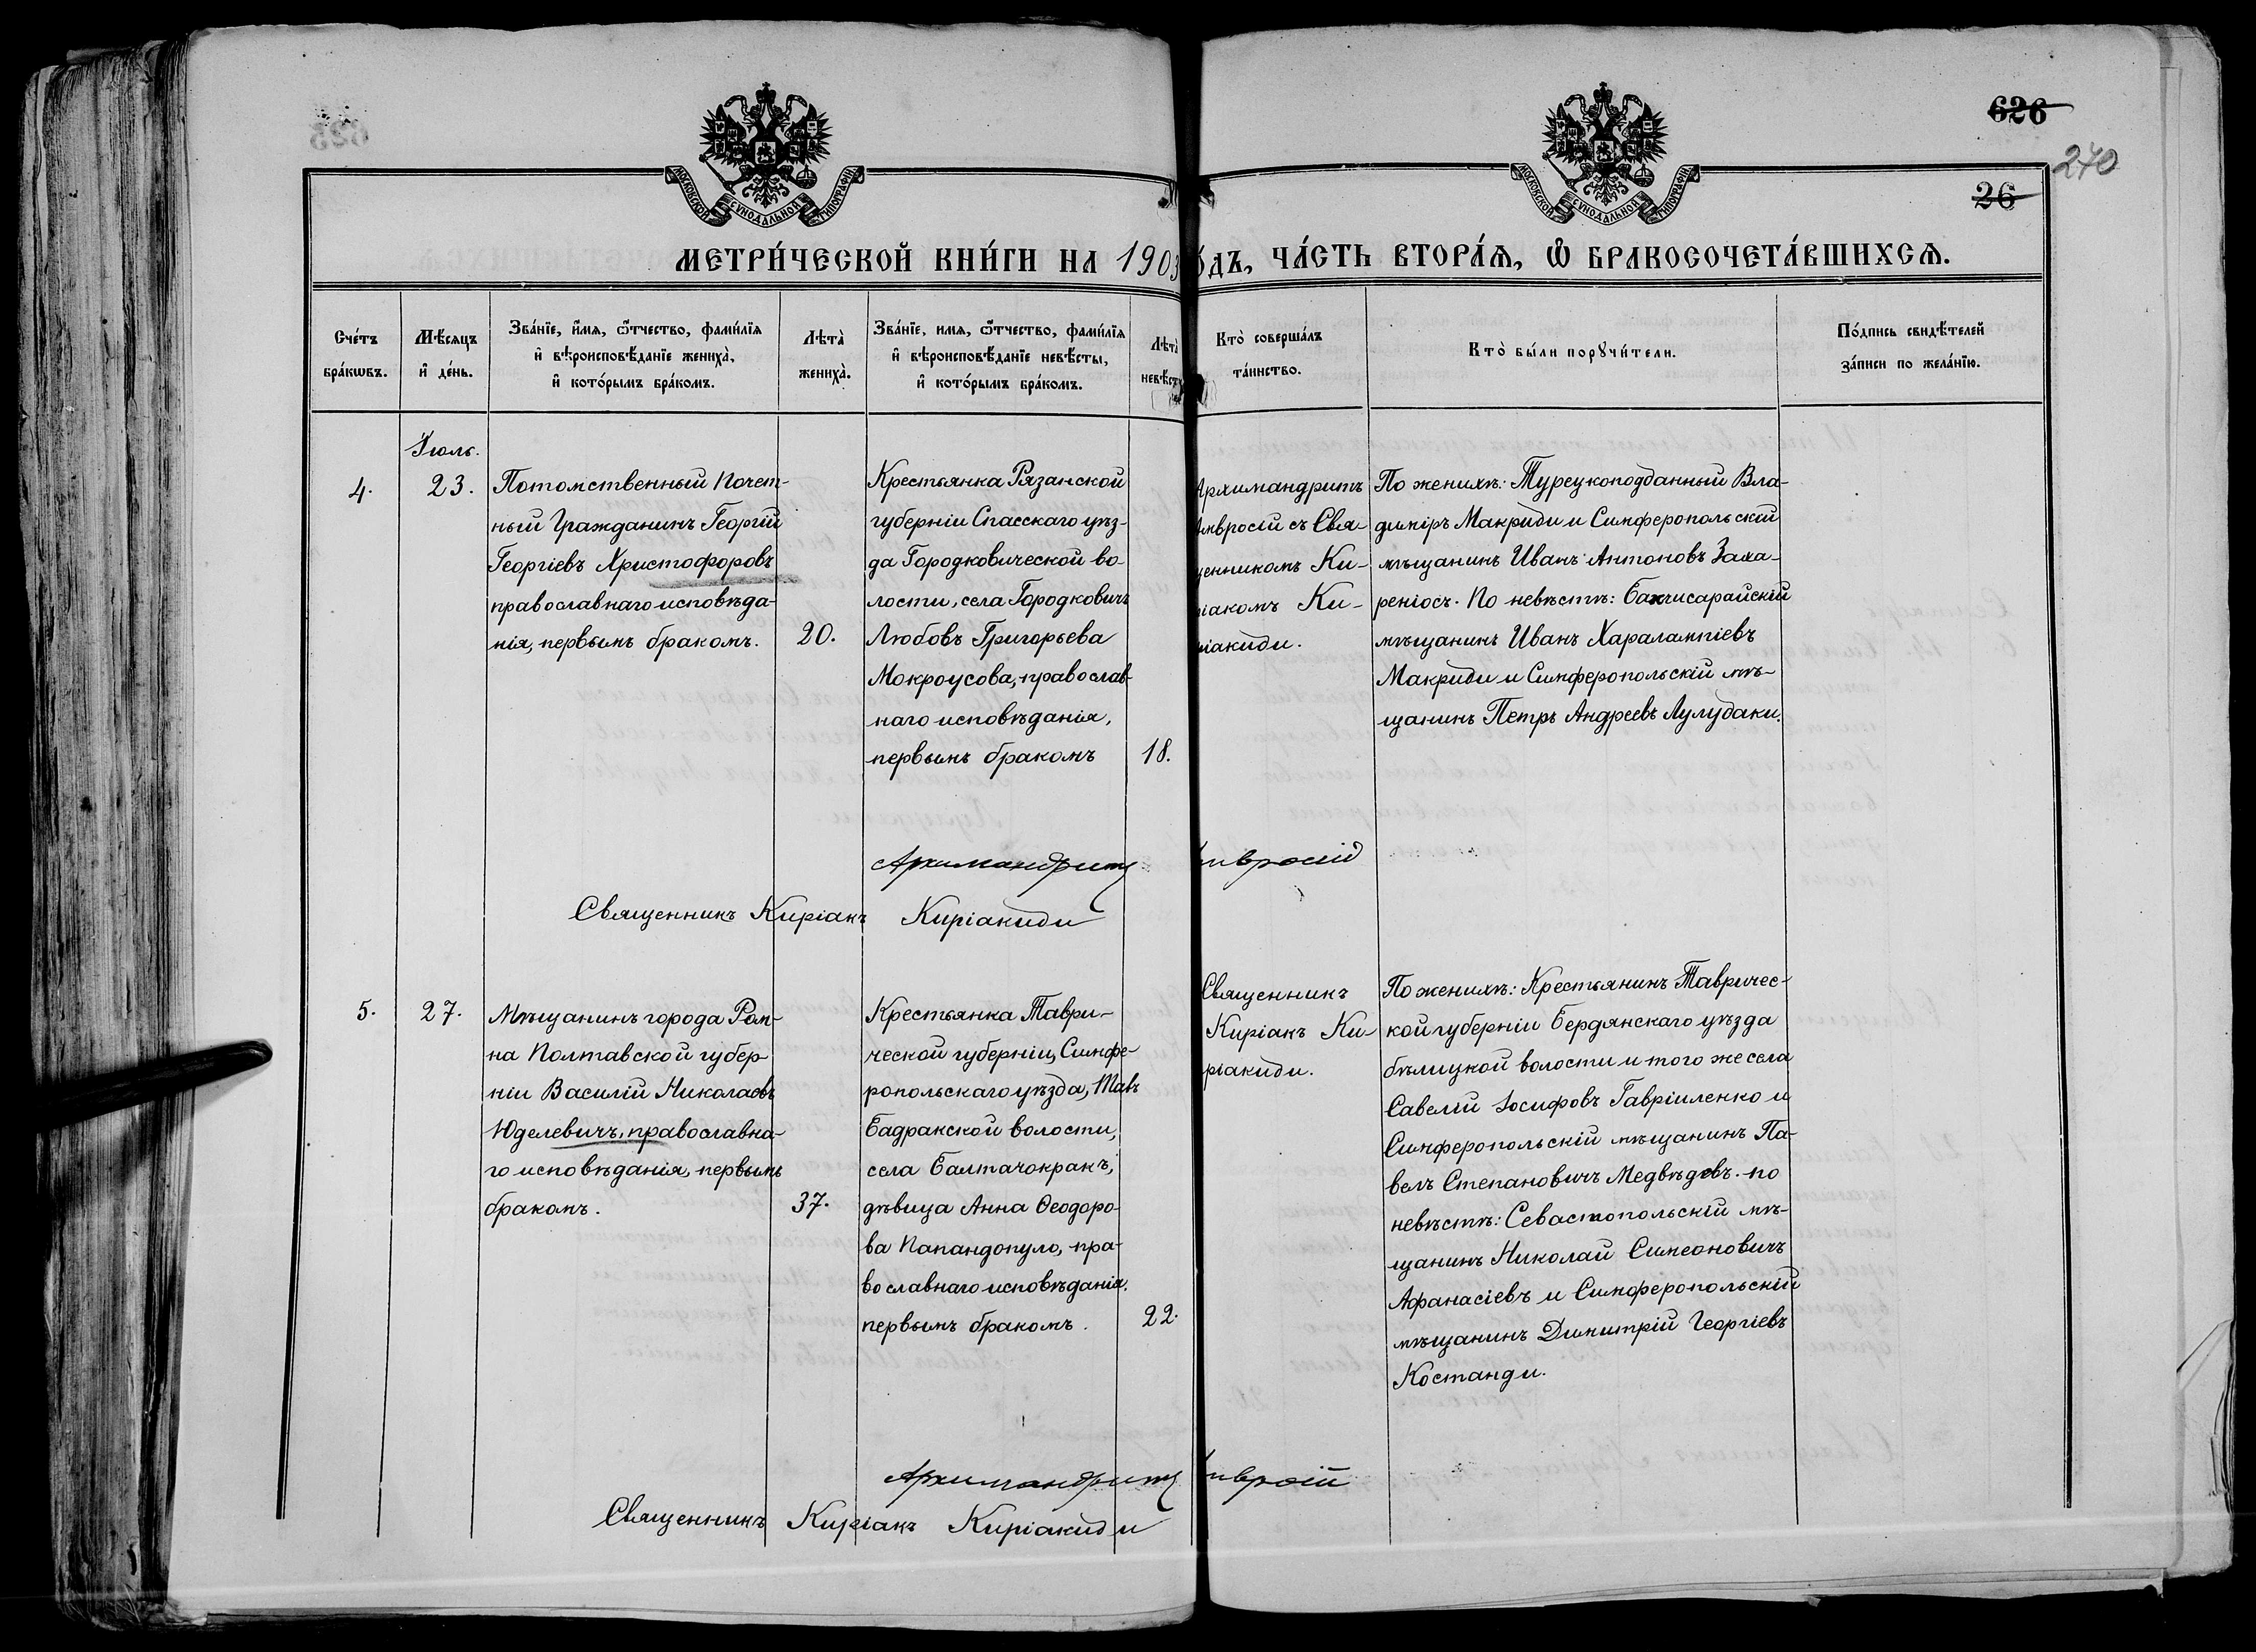 626
270
26
МОСКОВСКОЙ СѴНОДАЛЬНОЙ ТИПОГРАФІИ
МОСКОВСКОЙ СѴНОДАЛЬНОЙ ТИПОГРАФІИ
МЕТРИ́ЧЕСКОЙ КНИ́ГИ НА 1903
ѻ́ДЪ, ЧА́СТЬ ВТОРА́Ѧ, Ѽ БРАКОСОЧЕТА́ВШИХСѦ.
Сче́тъ
бра́кѡвъ.
Мѣ́сяцъ
и҆ де́нь.
Зва́нїе, и҆́мя, ѻ҆́тчество, фами́лїя
и҆ вѣроисповѣ́данїе жениха̀,
и҆ кото́рымъ бра́комъ.
Лѣта̀
жениха̀.
Зва́нїе, имя, ѻ҆́тчество, фами́лїя
и҆ вѣроисповѣ́данїе невѣ́сты,
и҆ кото́рымъ бра́комъ.
Лѣта̀
невѣ́сты
Кто̀ соверша́лъ
та́инство.
Кто̀ бы́ли порꙋчи́тели.
По́дпись свидѣ́телей
за́писи по жела́нїю.
Іюль.
4.
23.
Потомственный Почет-
ный Гражданинъ Георгій
Георгіевъ Христофоровъ
православнаго исповѣда-
нія, первымъ бракомъ.
20.
Крестьянка Рязанской
губерніи Спасскаго уѣз-
да Городковической во-
лости, села Городковичъ
Любовь Григорьева
Мокроусова, православ-
наго исповѣданія,
первымъ бракомъ
18.
Архимандритъ
Амвросій съ Свя-
щенникомъ Ки-
ріакомъ Ки-
ріакиди.
По женихѣ: Турецкоподданный Вла-
диміръ Макриди и Симферопольскій
мѣщанинъ Иванъ Антоновъ Заха-
реніосъ. По невѣстѣ: Бахчисарайскій
мѣщанинъ Иванъ Харалампіевъ
Макриди и Симферопольскій мѣ-
щанинъ Петръ Андреевъ Лулудаки.
Архимандритъ Амвросій
Священникъ Киріакъ Киріакиди
5.
27.
Мѣщанинъ города Ром-
на Полтавской губер-
ніи Василій Николаевъ
Юделевичъ, православна-
го исповѣданія, первымъ
бракомъ.
37.
Крестьянка Таври-
ческой губерніи, Симфе-
ропольскаго уѣзда, Тавъ
Бадракской волости,
села Балтачокракъ,
дѣвица Анна Ѳеодоро-
ва Папандопуло, пра-
вославнаго исповѣданія.
первымъ бракомъ.
22.
Священникъ
Киріакъ Ки-
ріакиди.
По женихѣ: Крестьянинъ Тавричес-
кой губерніи Бердянскаго уѣзда
бѣлицкой волости и того же села
Савелій Іосифовъ Гавріиленко и
Симферопольскій мѣщанинъ Па-
велъ Степановичъ Медвѣдевъ. по
невѣстѣ: Севастопольскій мѣ-
щанинъ Николай Симеоновичъ
Афанасіевъ и Симферопольскій
мѣщанинъ Димитрій Георгіевъ
Костанди.
Архимандритъ Амвросій
Священникъ Киріакъ Киріакиди